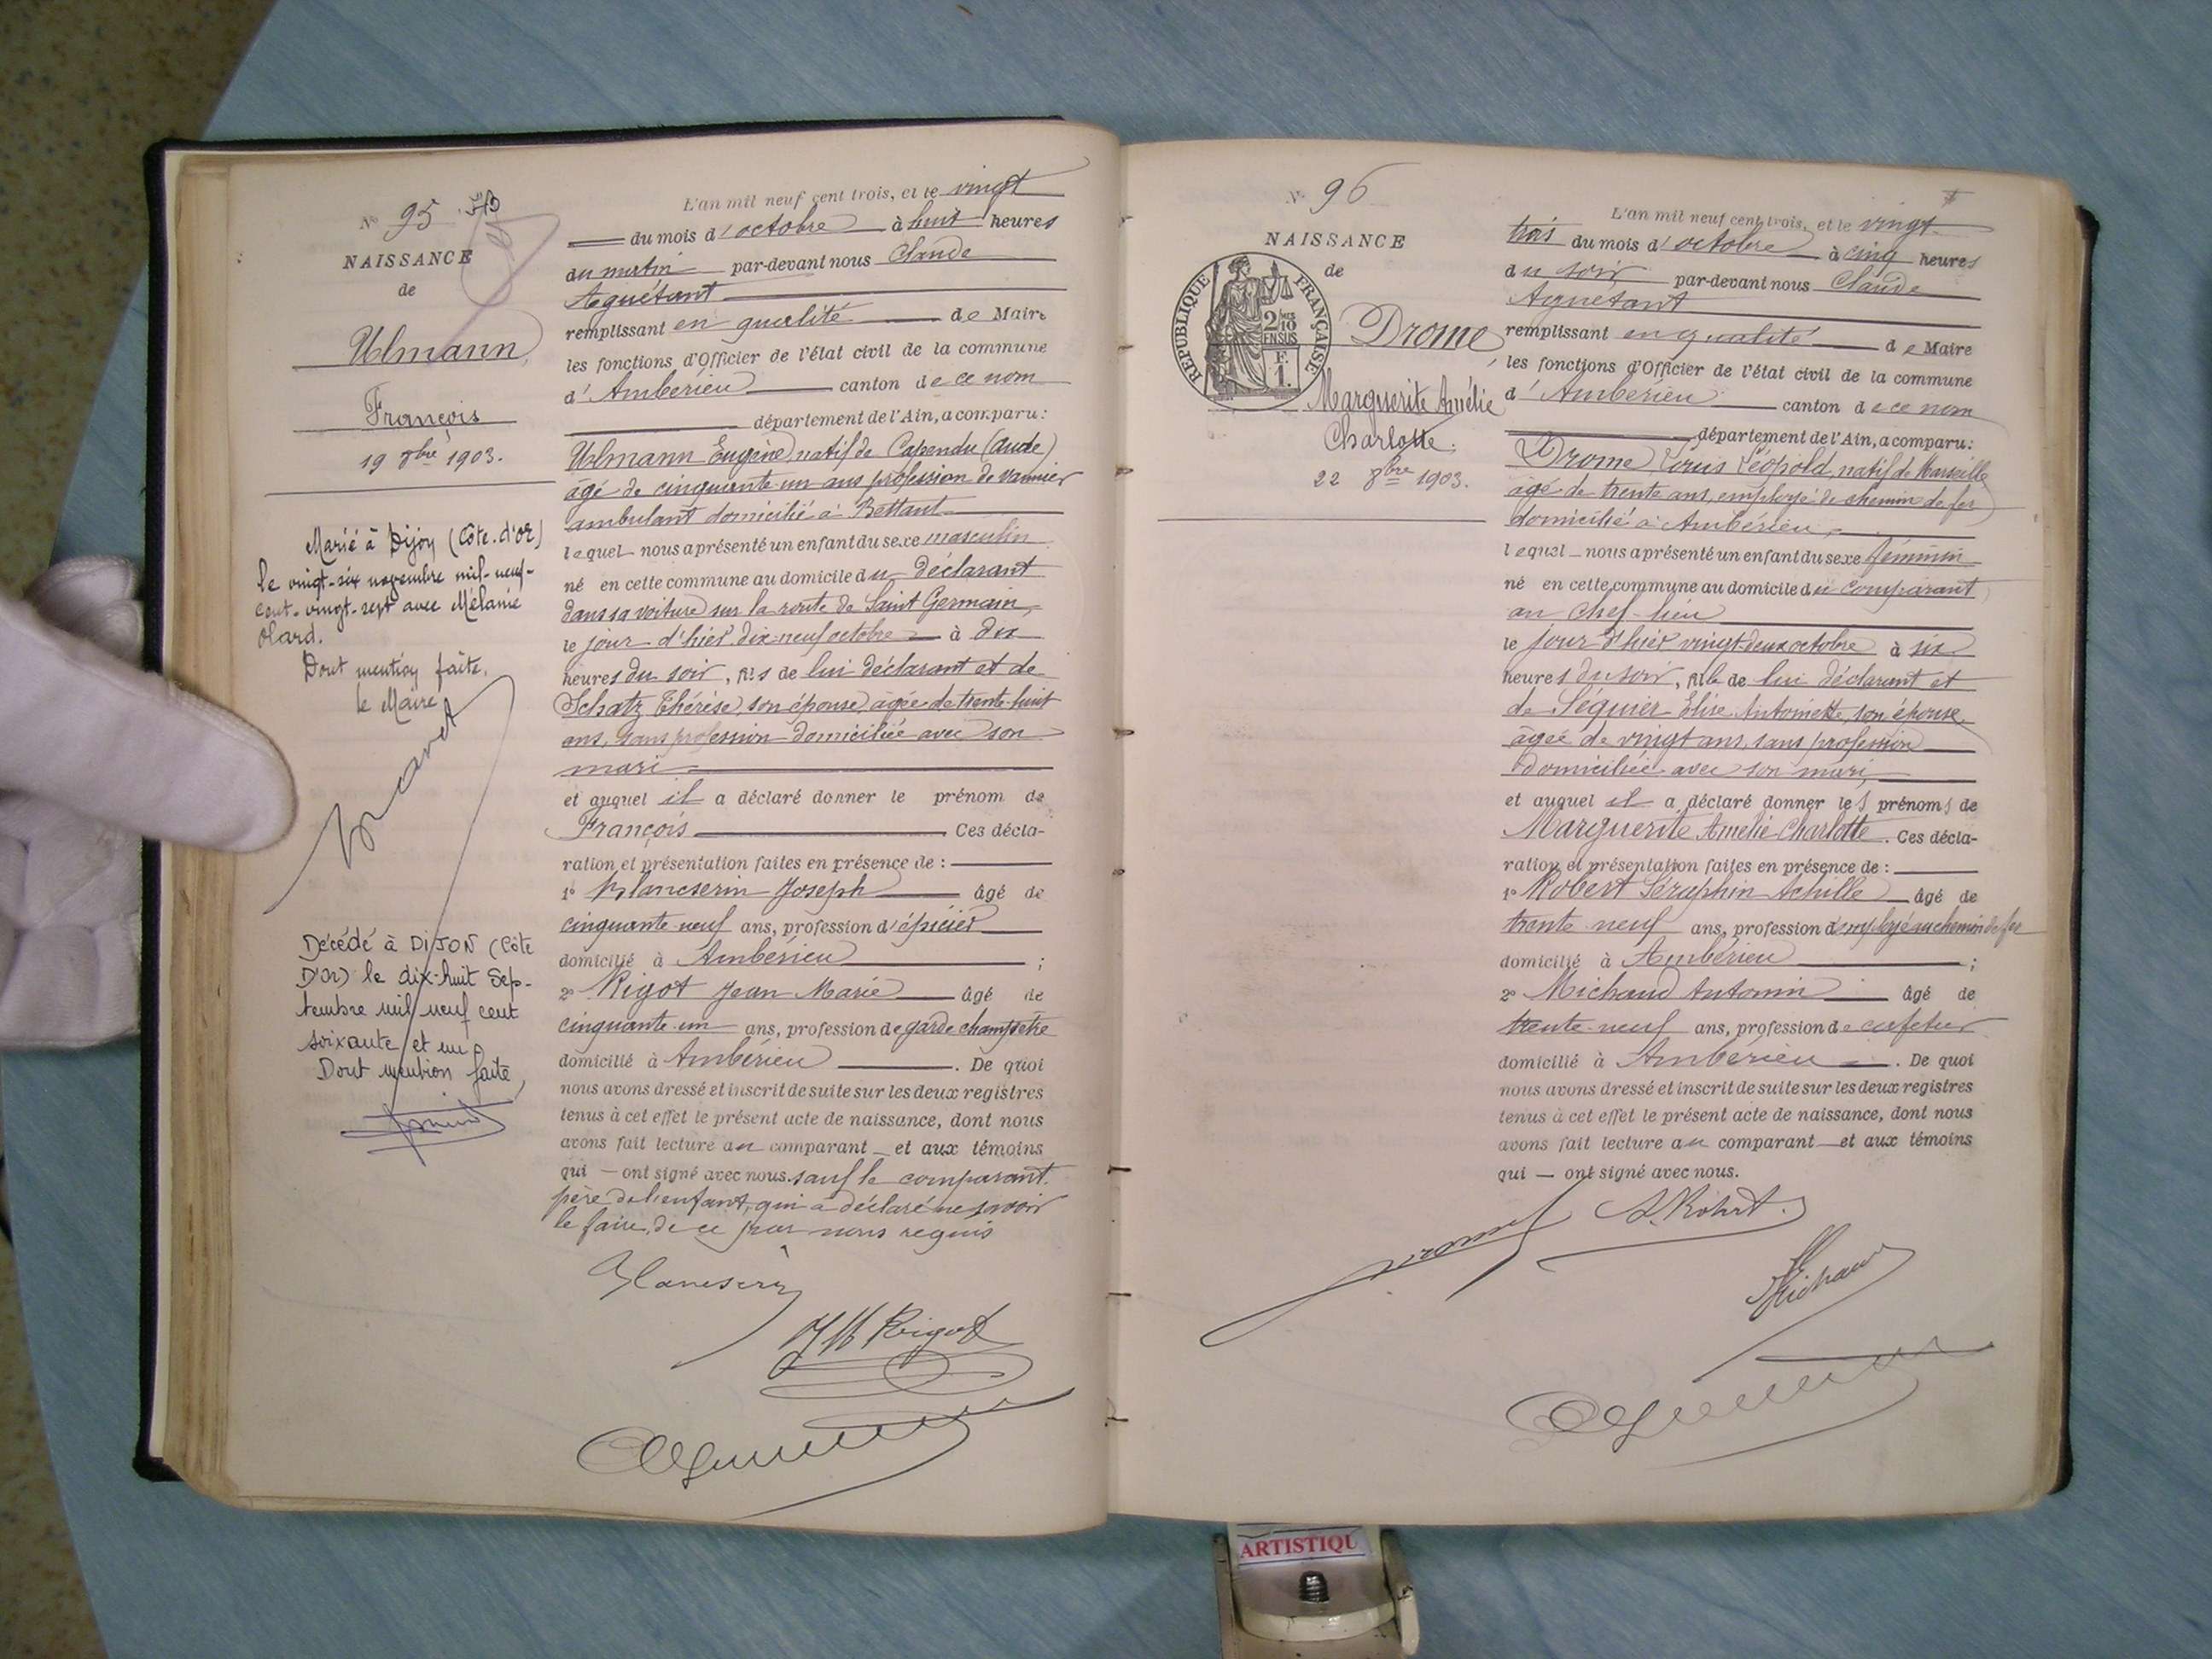 N° 95
NAISSANCE
de
Ulmann
François
19 8bre 1903.
Marié à Dijon (Côte-d'Or)
le vingt-six novembre mil-neuf-
cent-vingt-sept avec Mélanie
Olard.
Dont mention faite.
le Maire
Décédé à DIJON (Côte
D'Or) le dix-huit Sep-
tembre mil neuf cent
soixante et un
Dont mention faite,
L'an mil neuf cent trois, et le vingt
du mois d'octobre à huit heures
du matin par-devant nous Claude
Aguétant
remplissant en qualité de Maire
les fonctions d'Officier de l'état civil de la commune
d'Ambérieu canton de ce nom
département de l'Ain, a comparu:
Ulmann Eugène, natif de Capendu (Aude)
âgé de cinquante-un ans profession de vannier
ambulant domicilié à Bettant
lequel nous a présenté un enfant du sexe masculin
né en cette commune au domicile du déclarant
dans sa voiture sur la route de Saint Germain,
le jour d'hier dix-neuf octobre à dix
heures du soir, fils de lui déclarant et de
Schatz Thérèse, son épouse, âgée de trente-huit
ans, sans profession domiciliée avec son
mari
et auquel il a déclaré donner le prénom de
François. Ces décla-
ration et présentation faites en présence de :
1° Blancserin Joseph âgé de
cinquante-neuf ans, profession d'épicier
domicilié à Ambérieu ;
2° Rigot Jean Marie âgé de
cinquante-un ans, profession de garde champêtre
domicilié à Ambérieu. De quoi
nous avons dressé et inscrit de suite sur les deux registres
tenus à cet effet le présent acte de naissance, dont nous
avons fait lecture au comparant et aux témoins
qui ont signé avec nous. sauf le comparant.
père de l'enfant, qui a déclaré ne savoir
le faire, de ce par nous requis
Blancserin
JM Rigot
N° 96
NAISSANCE
de
RÉPUBLIQUE FRANÇAISE
2/10
EN SUS
F.
1.
Drome
Marguerite Amélie
Charlotte.
22 8bre 1903.
L'an mil neuf cent trois, et le vingt-
trois du mois d'octobre à cinq heures
du soir par-devant nous Claude
Aguétant
remplissant en qualité de Maire
les fonctions d'Officier de l'état civil de la commune
d'Ambérieu canton de ce nom
département de l'Ain, a comparu:
Drome Louis Léopold, natif de Marseille
âgé de trente ans, employé de chemin de fer
domicilié à Ambérieu,
lequel nous a présenté un enfant du sexe féminin
né en cette commune au domicile du comparant
au chef-lieu
le jour d'hier vingt-deux octobre à six
heures du soir, fille de lui déclarant et
de Séguier Elise Antoinette, son épouse,
âgée de vingt ans, sans profession
domiciliée avec son mari,
et auquel il a déclaré donner les prénoms de
Marguerite Amélie Charlotte. Ces décla-
ration et présentation faites en présence de :
1° Robert Séraphin Achille âgé de
trente-neuf ans, profession d'employé au chemin de fer
domicilié à Ambérieu ;
2° Michaud Antonin âgé de
trente-neuf ans, profession de cafetier
domicilié à Ambérieu. De quoi
nous avons dressé et inscrit de suite sur les deux registres
tenus à cet effet le présent acte de naissance, dont nous
avons fait lecture au comparant et aux témoins
qui ont signé avec nous.
Drome
A. Robert.
Michaud
ARTISTIQU